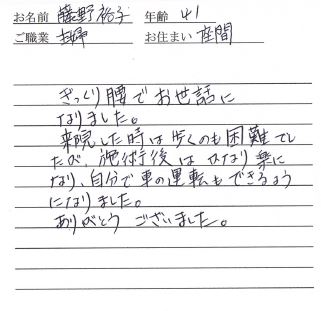 お名前 藤野裕子 年齢 41
ご職業 主婦 お住まい 座間
ぎっくり腰でお世話に
なりました。
来院した時は歩くのも困難でし
たが、施術後はかなり楽に
なり、自分で車の運転もできるよう
になりました。
ありがとうございました。